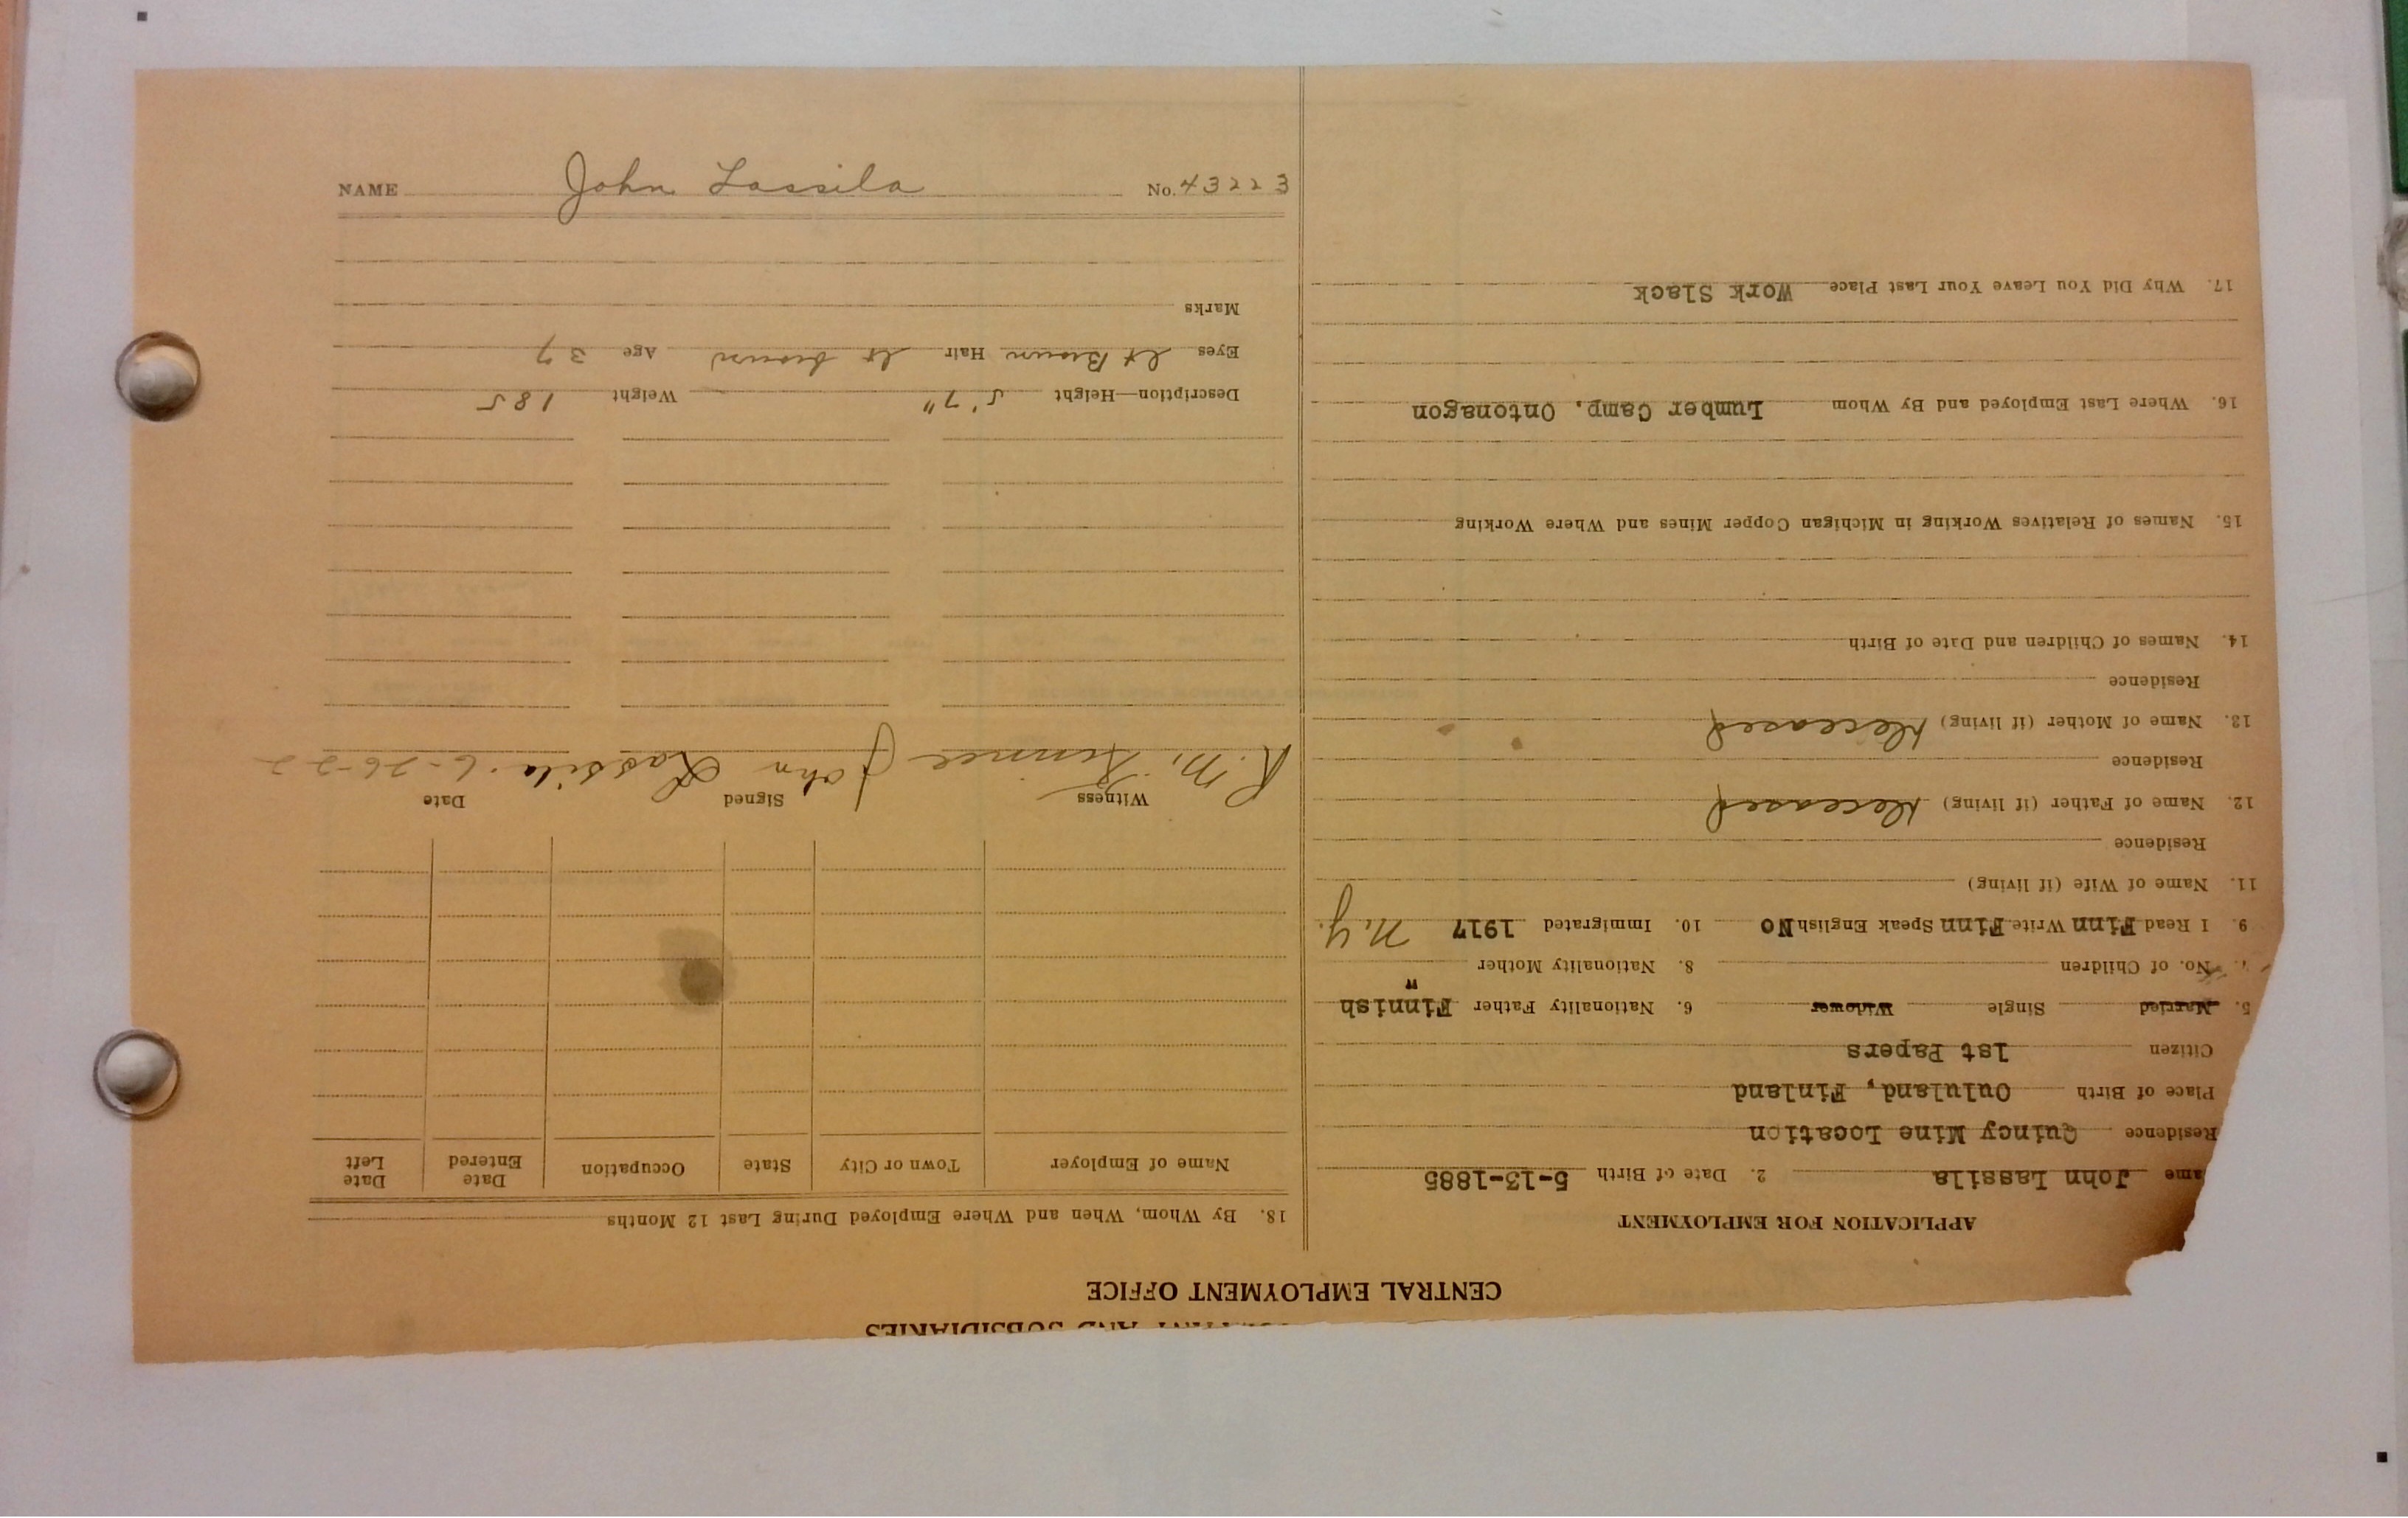 NAME John Lassila No. 43223
AND SUBSIDIARIES
CENTRAL EMPLOYMENT OFFICE
APPLICATION FOR EMPLOYMENT
ame John Lassila 2. Date of Birth 5-13-1885
Residence Quincy Mine Location
Place of Birth Oululand, Finland
Citizen 1st Papers
5. Married Single Widower 6. Nationality Father Finnish
7. No. of Children 8. Nationality Mother "
9. I Read Finn Write Finn Speak English No 10. Immigrated 1917 N.Y.
11. Name of Wife (if living)
Residence
12. Name of Father (if living) Deceased
Residence
13. Name of Mother (if living) Deceased
Residence
14. Names of Children and Date of Birth
15. Names of Relatives Working in Michigan Copper Mines and Where Working
16. Where Last Employed and By Whom Lumber Camp, Ontonagon
17. Why Did You Leave Your Last Place Work Slack
18. By Whom, When and Where Employed During Last 12 Months
Name of Employer Town or City State Occupation Date Entered Date Left
Witness Signed Date
R. M. John Lassila. 6-26-22
Description—Height 5'7" Weight 185
Eyes lt Brown Hair lt brown Age 37
Marks